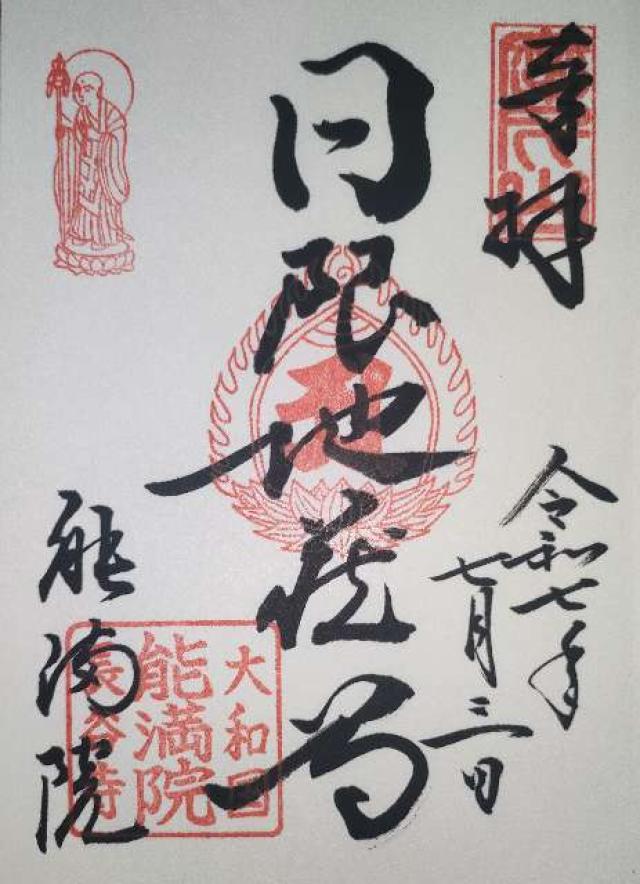 奉拝
令和七年
七月三日
日限地蔵尊
能満院
大和国
能満院
長谷寺